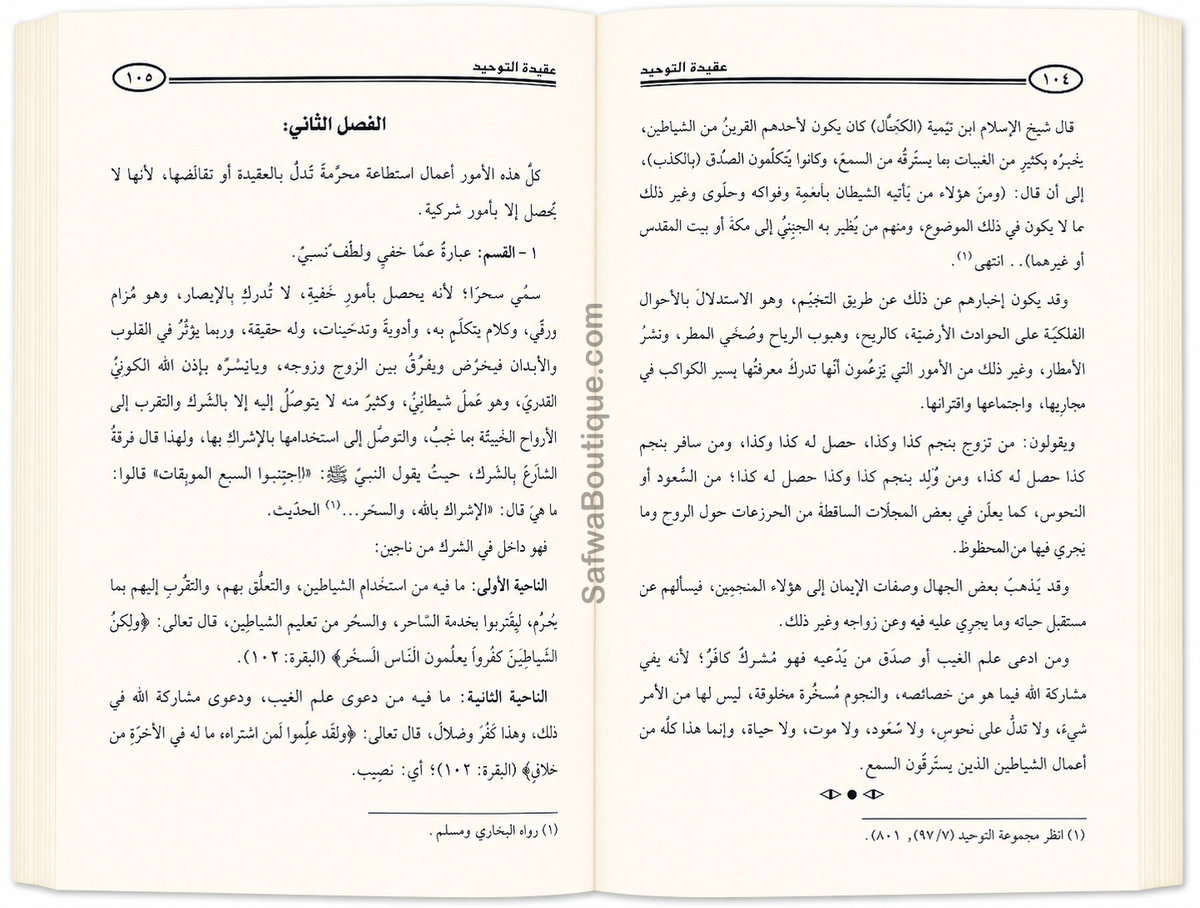 عقيدة التوحيد
١٠٤
قال شيخ الإسلام ابن تيمية (الكجنَّال) كان يكون لأحدهم القرينُ من الشياطين،
يخبرُه بكثيرِ من الغيبات بما يسترقُه من السمعَ، وكانوا يَتكلّمون الصدُق (بالكذب)،
إلى أن قال: (ومنَ هؤلاء من يَأتيه الشيطان بأَنعَمِة وفواكه وحلّوى وغير ذلك
مما لا يكون في ذلك الموضوع، ومنهم من يُظير به الجنِنيُ إلى مكةَ أو بيت المقدس
أو غيرهما).. انتهى(١).
وقد يكون إخبارهم عن ذلك عن طريق التخِيُم، وهو الاستدلالَ بالأحوال
الفلكيّة على الحوادث الأرضيّة، كالريح، وهبوب الرياح وضُخَي المطر، ونشرُ
الأمطار، وغير ذلك من الأمور التي يَزعُمون أنّها تدركُ معرفتُها بِسير الكواكب في
مجارِيها، واجتماعها واقترانها.
ويقولون: من تزوج بنجم كذا وكذا، حصل له كذا وكذا، ومن سافر بنجم
كذا حصل له كذا، ومن وُلِد بنجم كذا وكذا حصل له كذا؛ من السُّعود أو
النحوس، كما يعلّن في بعض المجلّات الساقطة من الحرزعات حول الروج وما
يَجري فيها من المحظوظ.
وقد يَذهبَ بعض الجهال وصفات الإيمان إلى هؤلاء المنجمِين، فيسألهم عن
مستقبل حياته وما يجرِي عليه فيه وعن زواجه وغير ذلك.
ومن ادعى علم الغيب أو صدَق من يَدّعيه فهو مُشركٌ كافَرٌ؛ لأنه يفي
مشاركة الله فيما هو من خصائصه، والنجوم مُسخُرة مخلوقة، ليس لها من الأمر
شيءَ، ولا تدلُّ على نحوسِ، ولا سُعَود، ولا موت، ولا حياة، وإنما هذا كلُّه من
أعمال الشياطين الذين يستَرقّون السمع.
(١) انظر مجموعة التوحيد (٩٧/٧), ٨٠١).
عقيدة التوحيد
١٠٥
الفصل الثاني:
كلُّ هذه الأمور أعمال استطاعة محرَّمةً تَدلُّ بالعقيدة أو تقالَضها، لأنها لا
تُحصل إلا بأمور شركية.
١ - القسم: عبارةٌ عمَّا خفي ولطّف نسبيّ.
سمُي سحرًا؛ لأنه يحصل بأمورِ خَفيةِ، لا تُدركِ بِالإبصار، وهو مُزام
ورقّي، وكلام يتكلّم به، وأدويةً وتدخَينات، وله حقيقة، وربما يؤثُرُ في القلوب
والأبدان فيخرُض ويفرُقُ بين الزوج وزوجه، ويايَسْرَه بإذن الله الكونِيُ
القدريَ، وهو عَملٌ شيطانِيُ، وكثيرٌ منه لا يتوصلُ إليه إلا بالشَرك والتقرب إلى
الأرواح الخَبيثَة بما نحَبُ، والتوصَّل إلى استخدامها بالإشراكِ بها، ولهذا قال فرقةُ
الشارَعَ بِالشَرك، حيثُ يقول النبيّ ﷺ: «اِجتِنبوا السبع الموبِقات» قالوا:
ما هيّ قال: «الإشراك بالله، والسخر...(١) الحدّيث.
فهو داخل في الشرك من ناجين:
الناحية الأولى: ما فيه من استخَدام الشياطين، والتعلُّق بهم، والتقُرب إليهم بما
يحُرُم، ليقتربوا بخدمة السَّاحر، والسحُر من تعليم الشياطين، قال تعالى: ﴿ولِكنُ
الشَياطِيَنَ كفُرواَ يعلُمون الَنَاس الَسحُر﴾ (البقرة: ١٠٢).
الناحية الثانية: ما فيه من دعوى علم الغيب، ودعوى مشاركة الله في
ذلك، وهذا كَفُرَ وضلالَ، قال تعالى: ﴿ولقَد علِمُوا لَمن اشتراءه ما له في الأخرَةِ من
خلافِ﴾ (البقرة: ١٠٢)؛ أي: نصِيب.
(١) رواه البخاري ومسلم.
SafwaBoutique.com